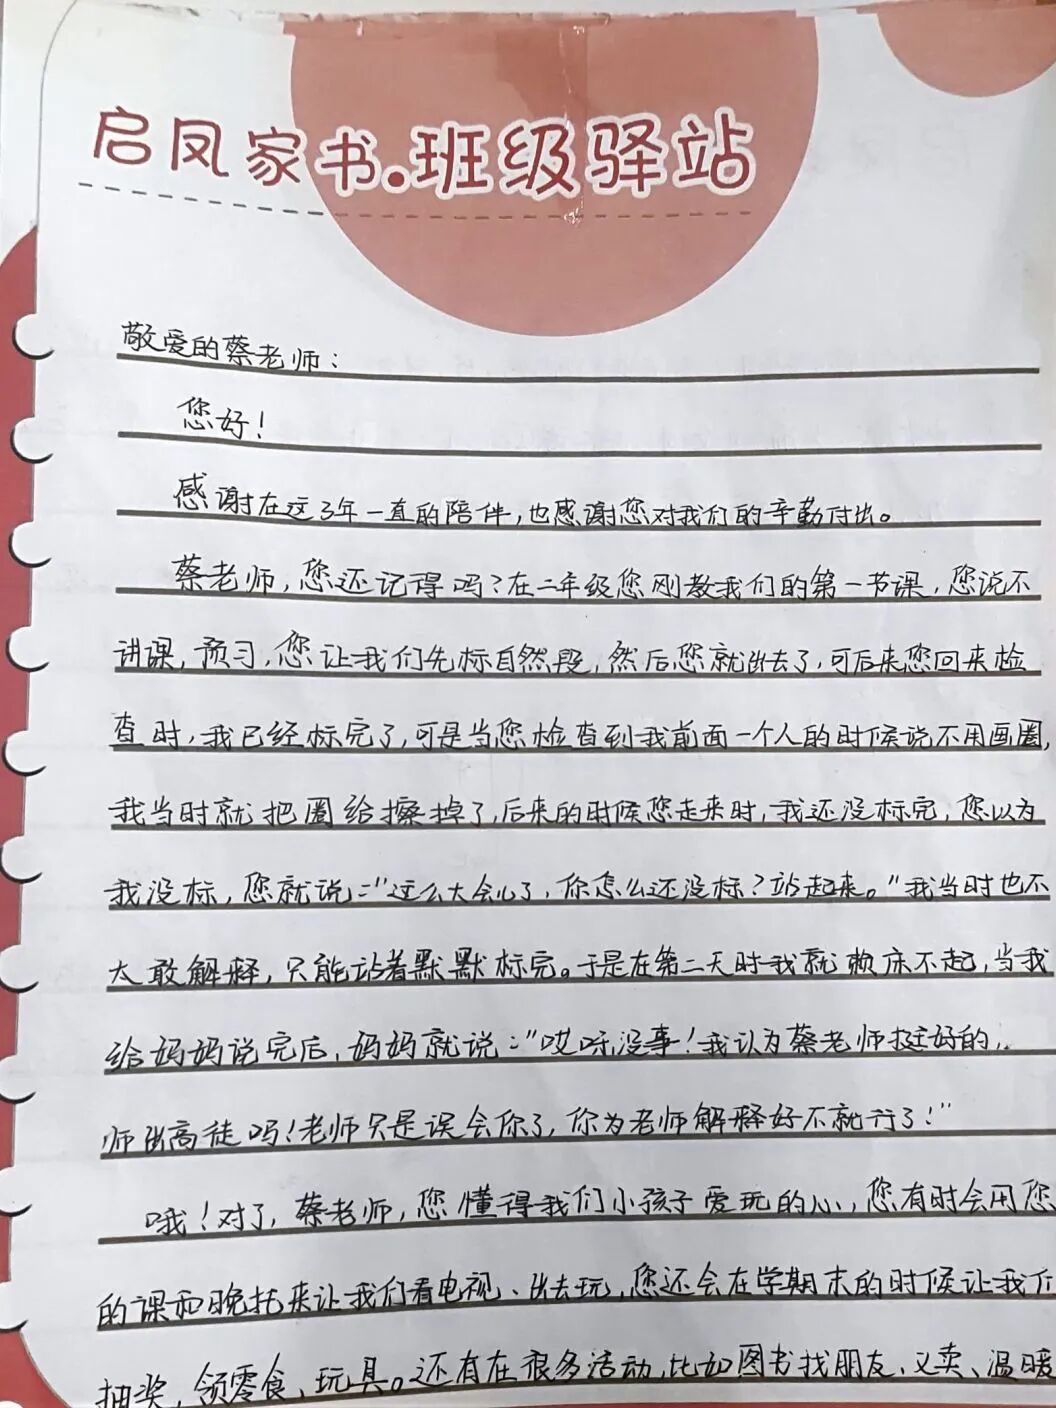 启凤家书.班级驿站
敬爱的蔡老师：
您好！
感谢在这3年一直的陪伴，也感谢您对我们的辛勤付出。
蔡老师，您还记得吗？在二年级您刚教我们的第一节课，您说不
讲课，预习，您让我们先标自然段，然后您就出去了，可后来您回来检
查时，我已经标完了，可是当您检查到我前面一个人的时候说不用画圈，
我当时就把圈给擦掉了，后来的时候您走来时，我还没标完，您以为
我没标，您就说："这么大会儿了，你怎么还没标？站起来。"我当时也不
太敢解释，只能站着默默标完。于是在第二天时我就赖床不起，当我
给妈妈说完后，妈妈就说："哎呀没事！我认为蔡老师挺好的，
师出高徒吗！老师只是误会你了，你为老师解释好不就行了！"
哦！对了，蔡老师，您懂得我们小孩子爱玩的心，您有时会用您
的课和晚托来让我们看电视、出去玩，您还会在学期末的时候让我们
抽奖，领零食、玩具。还有在很多活动，比如图书找朋友、义卖、温暖